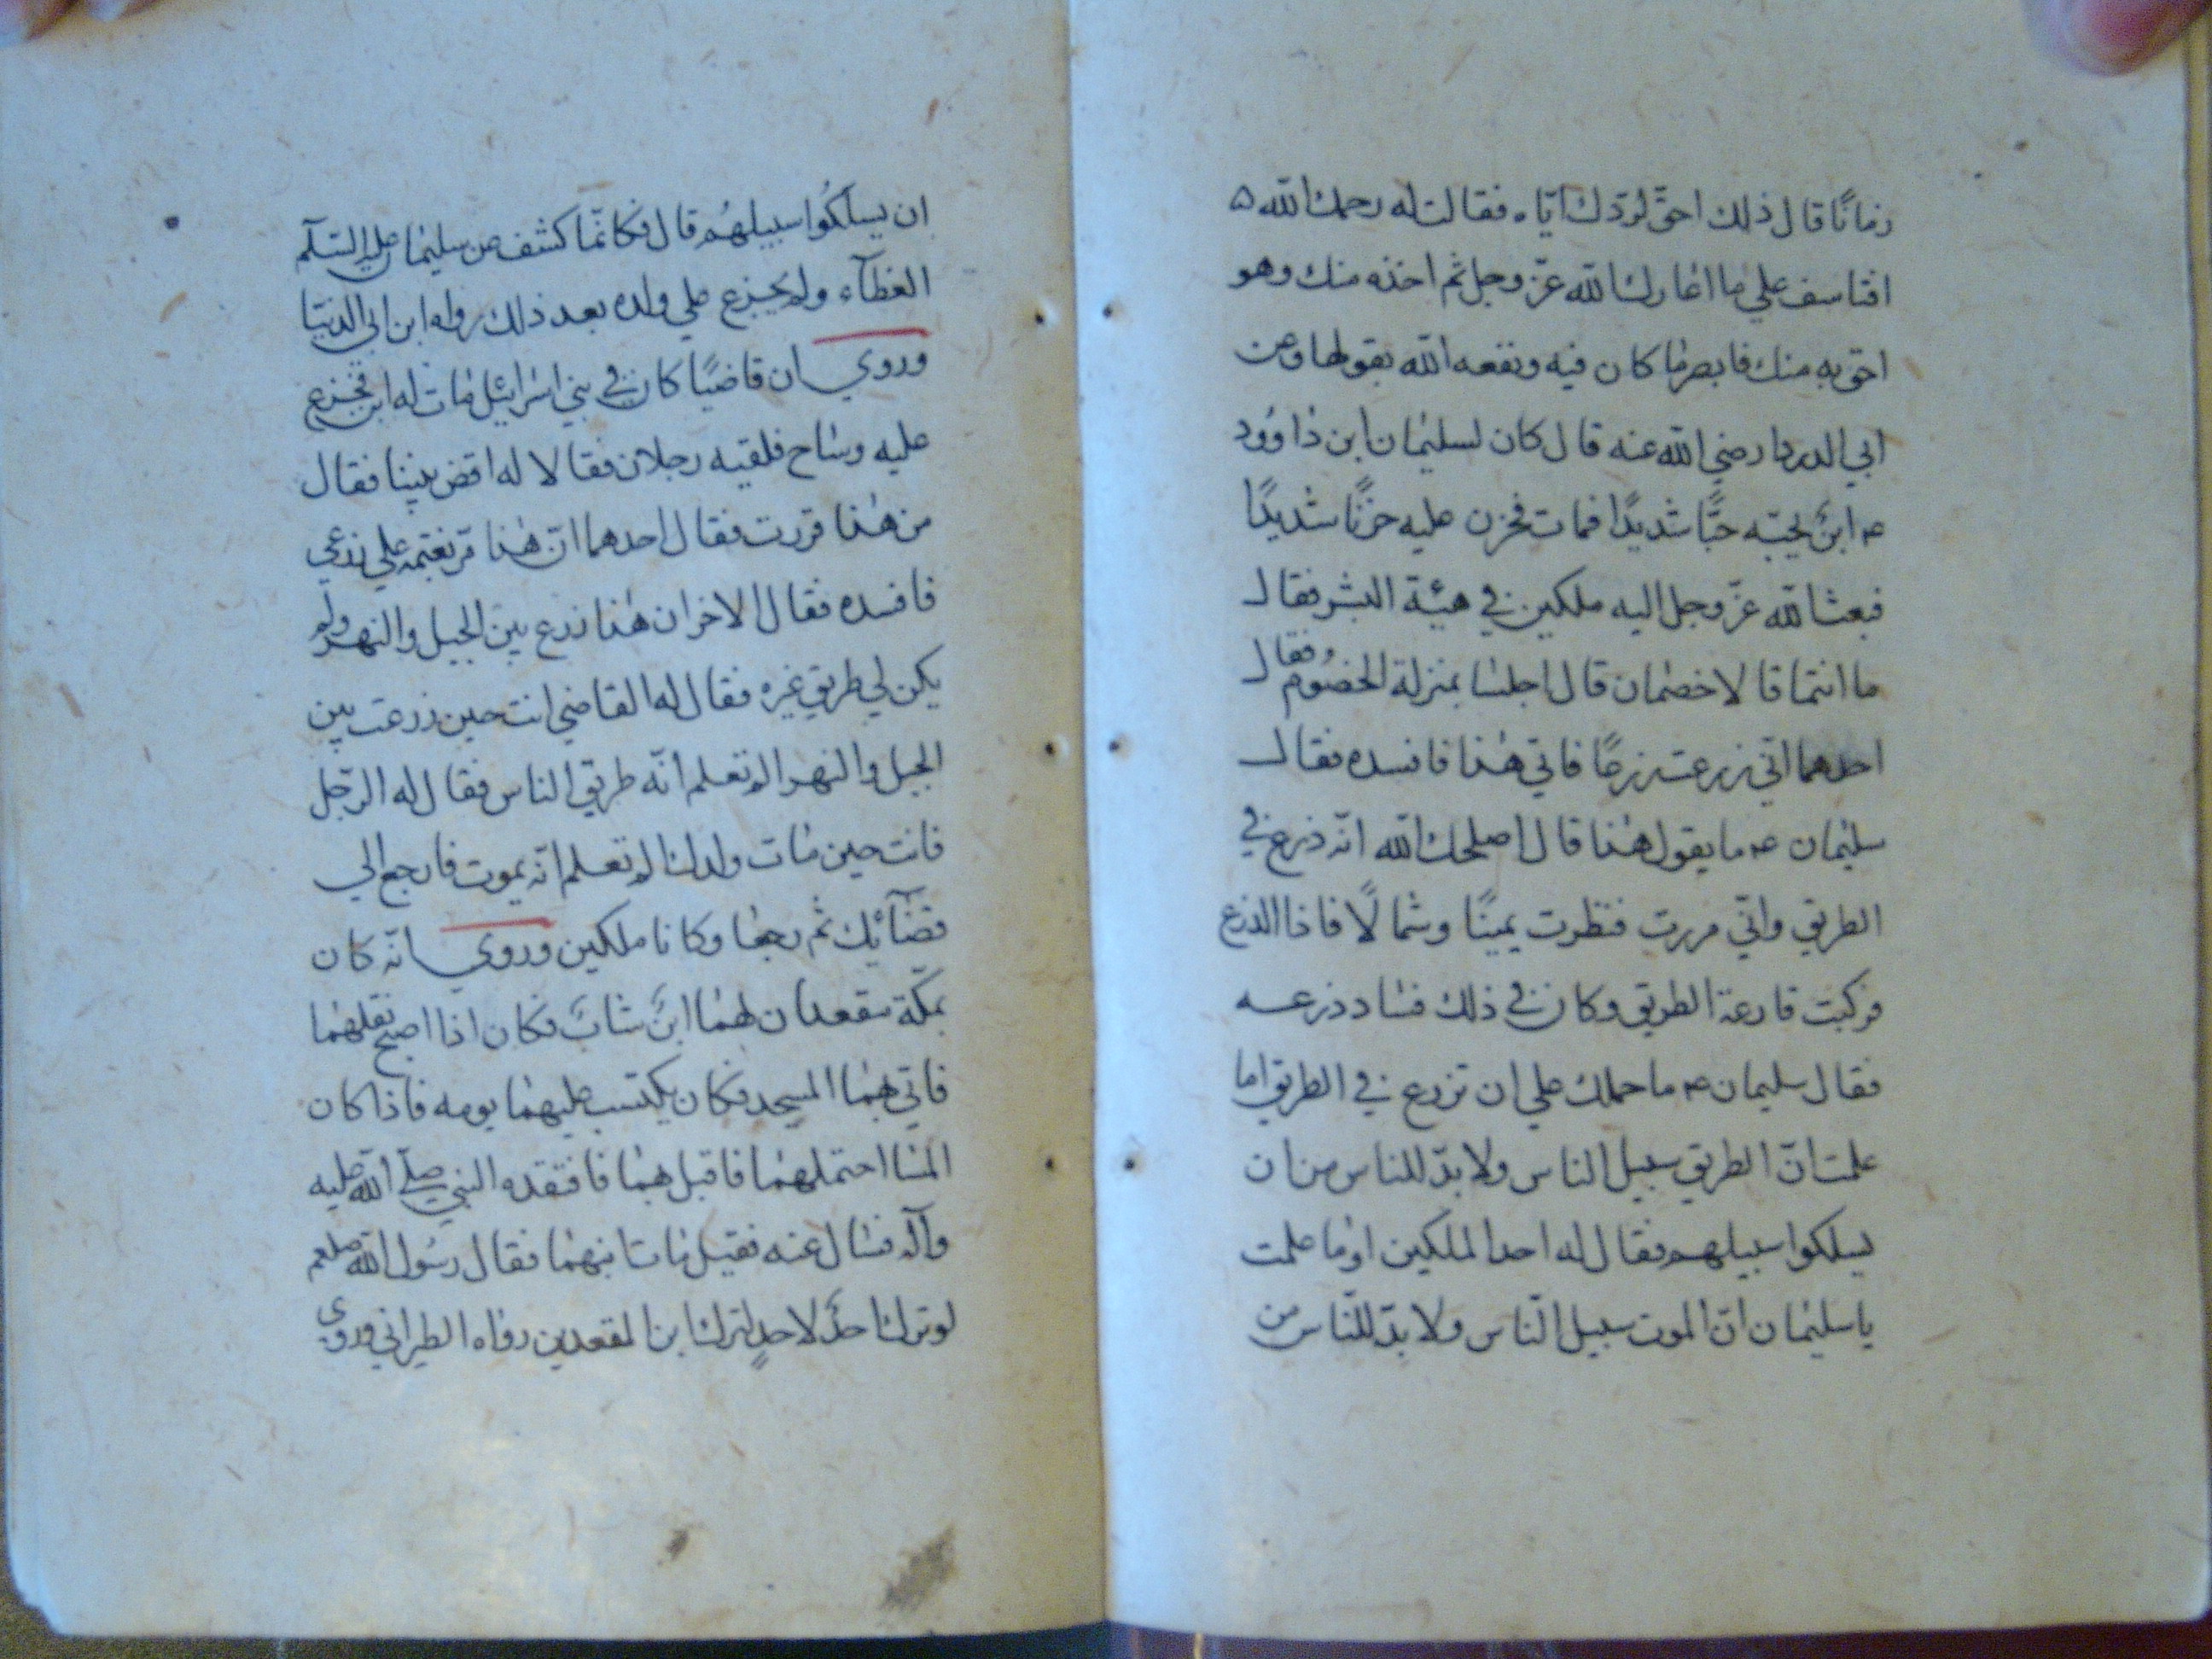 زمانًا قال ذلك احقّ لردّك ايّاه فقالت له رحمك الله
افتاسف علي ما اعارك الله عزّ وجل ثم اخذه منك وهو
احق به منك فابصر ما كان فيه ونفعه الله بقولها وعن
ابي الدرداء رضي الله عنه قال كان لسليمان ابن داوود
ع م ابنٌ يحبّه حبًّا شديدًا فمات فحزن عليه حزنًا شديدًا
فبعث الله عزّ وجل اليه ملكين في هيئة البشر فقال
ما انتما قالا خصمان قال اجلسا بمنزلة الخصُوم فقال
احدهما اني زرعت زرعًا فاتي هذا فافسده فقال
سليمان عم ما يقول هذا قال اصلحك الله انّه زرع في
الطريق وانّي مررت فنظرت يمينًا وشمالًا فاذا الزرع
فركبت قارعة الطريق وكان في ذلك فساد زرعه
فقال سليمان عم ما حملك علي ان تزرع في الطريق اما
علمت انّ الطريق سبيل الناس ولا بدّ للناس من ان
يسلكوا سبيلهم فقال له احد الملكين اوما علمت
يا سليمان انّ الموت سبيل النّاس ولا بدّ للنّاس من
ان يسلكُوا سبيلهُم قال فكانّما كشف عن سليمان عليه السّلم
الغطآء ولم يجزع علي ولده بعد ذلك رواه ابن ابي الدنيّا
وروي ان قاضيًا كان في بني اسرائيل مات له ابن فجزع
عليه وساح فلقيه رجلان فقالا له اقض بيننا فقال
من هذا فررت فقال احدهما انّ هذا مرّ بغنمه علي زرعي
فافسده فقال الاخر ان هذا زرع بين الجبل والنهر ولم
يكن لي طريق غيره فقال له القاضي انت حين زرعت بين
الجبل والنهر الم تعلم انّه طريق الناس فقال له الرّجل
فانت حين مات ولدك الم تعلم انّه يموت فارجع الي
قضآئك ثم رجعا وكانا ملكين وروي انّه كان
بمكّة مقعدان لهما ابنٌ شابٌ فكان اذا اصبح نقلهما
فاتي بهما المسجد فكان يكتسب عليهما يومه فاذا كان
المسا احتملهما فاقبل بهما فافتقده النبي صلّي الله عليه
وآله فسال عنه فقيل مات ابنهما فقال رسُول الله صلعم
لو ترك احدٌ لاحدٍ لترك ابن المقعدين رواه الطبراني وروي